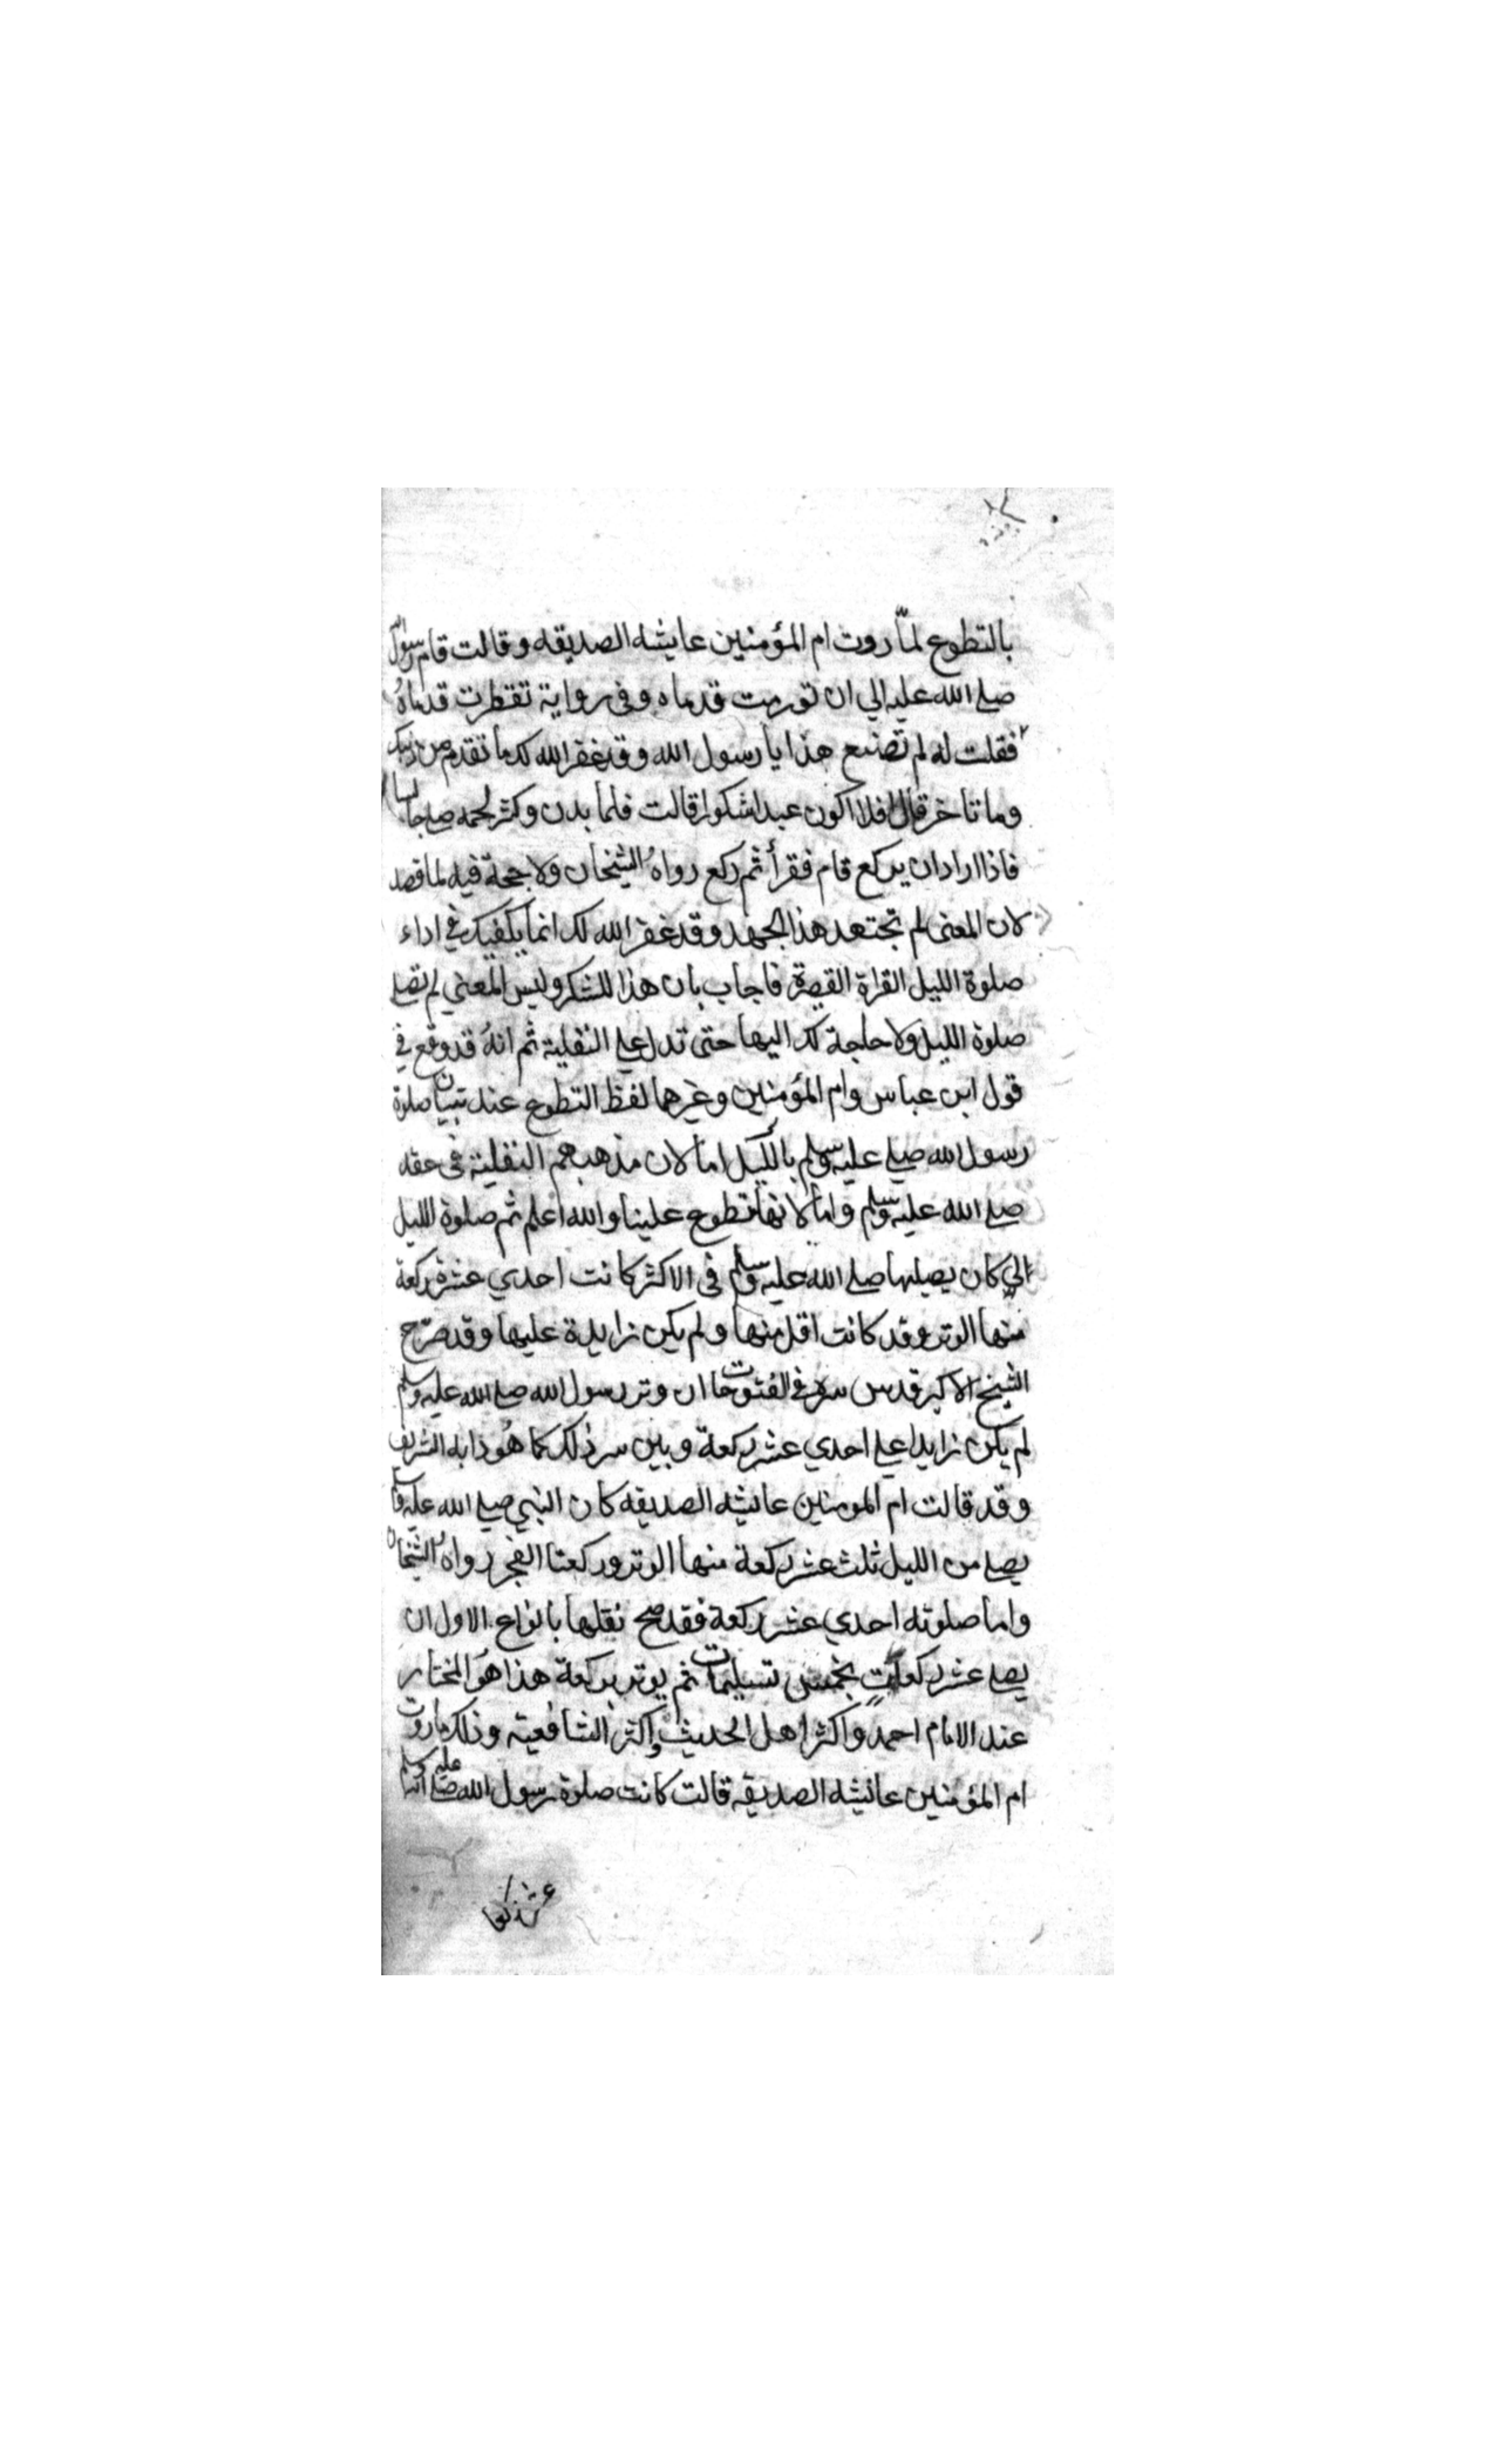 بالتطوع لمّا روت ام المؤمنين عايشه الصديقه وقالت قام رسول الله
صلى الله عليه الي ان تورمت قدماه وفي رواية تفطرت قدماهُ
فقلت له لم تصنع هذا يا رسول الله وقد غفر الله لك ما تقدم من ذنبك
وما تاخر قال افلا اكون عبدا شكورا قالت فلما بدن وكثر لحمه صلى جالسا
فاذا اراد ان يركع قام فقرأ ثم ركع رواهُ الشيخان ولا حجة فيه لما قصد
لان المعنى لم تجتهد هذا الجهد وقد غفر الله لك انما يكفيك في اداء
صلوة الليل القراة القصيرة فاجاب بان هذا للشكر وليس المعني لم تصلي
صلوة الليل ولا حاجة لك اليها حتى تدل على النفلية ثم انهُ قد وقع في
قول ابن عباس وام المؤمنين وغيرهما لفظ التطوع عند تبيان صلوة
رسول الله صلى عليه وسلم بالليل اما لان مذهبهم النفلية في حقه
صلى الله عليه وسلم واما لانها تطوع علينا والله اعلم ثم صلوة الليل
التي كان يصليها صلى الله عليه وسلم في الاكثر كانت احدي عشرة ركعة
منها الوتر وقد كانت اقل منها ولم يكن زايدة عليها وقد صرّح
الشيخ الاكبر قدس سره في الفتوحات ان وتر رسول الله صلى الله عليه وسلم
لم يكن زايدا على احدي عشر ركعة وبين سر ذلك كما هُو دابه الشريف
وقد قالت ام المومنين عايشه الصديقه كان النبي صلى الله عليه وسلم
يصلى من الليل ثلث عشر ركعة منها الوتر وركعتا الفجر رواهُ الشيخان
واما صلوته احدي عشر ركعة فقد صح نقلها بانواع الاول ان
يصلى عشر ركعات بخمس تسليمات ثم يوتر بركعة هذا هُو المختار
عند الامام احمد واكثر اهل الحديث واكثر الشافعية وذلك ما روت
ام المؤمنين عايشه الصديقه قالت كانت صلوة رسول الله صلى الله عليه وسلم